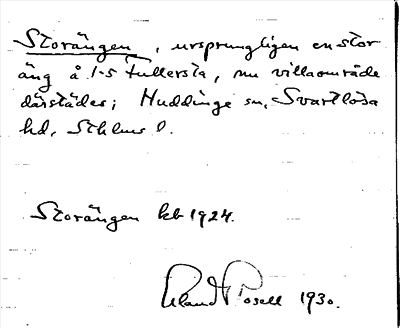 Storängen, ursprungligen en stor
äng å 1-5 Fullersta, nu villaområde
därstädes; Huddinge sn, Svartlösa
hd, Sthlms l.
Storängen kb 1924.
Rosell 1930.